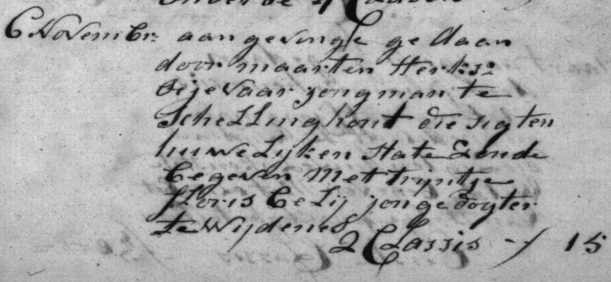 6 Novembr: aan gevinge gedaan
door maarten Herksz
oijevaar jongman te
Schellinghout die sigten
huwelijken state Zoude
begeven Met trijntje
floris Belij jonge dogter
te Wijdenes
2 Classis - ƒ 15